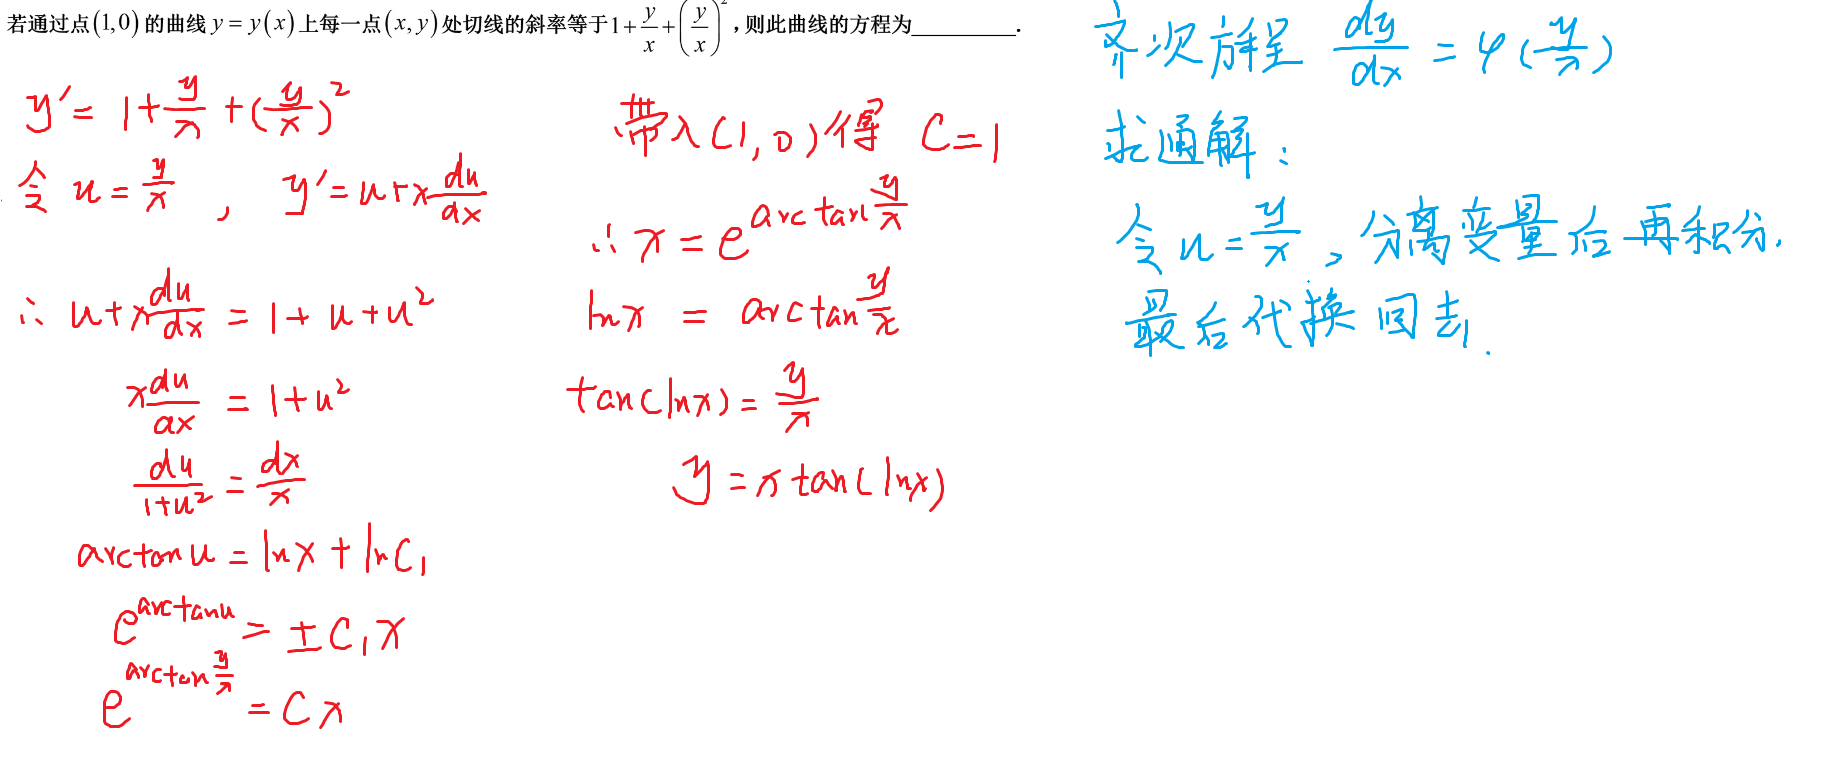 若通过点(1,0)的曲线y=y(x)上每一点(x,y)处切线的斜率等于1+y/x+(y/x)²,则此曲线的方程为__________.
y′=1+y/x+(y/x)²
令 u=y/x , y′=u+x du/dx
∴ u+x du/dx = 1+u+u²
x du/dx = 1+u²
du/(1+u²) = dx/x
arctan u = lnx + lnC₁
e^(arctan u) = ±C₁x
e^(arctan y/x) = Cx
带入(1,0)得 C=1
∴ x = e^(arctan y/x)
lnx = arctan y/x
tan(lnx) = y/x
y = x tan(lnx)
齐次方程 dy/dx = φ(y/x)
求通解:
令u=y/x,分离变量后再积分.
最后代换回去.